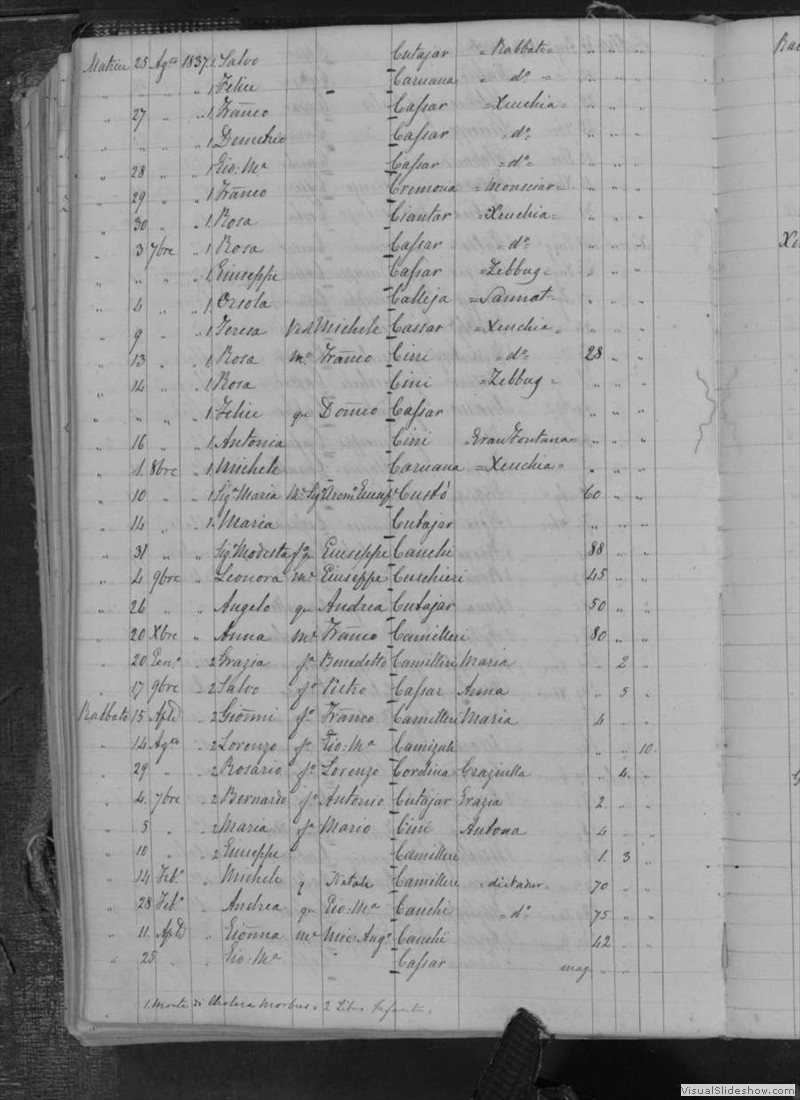 Matrice 25 Ag.to 1837 1 Salvo Cutajar =Rabbato= " " "
" " " " 1 Felice - Caruana " d.o = " " "
" 27 " " 1 Franco Cassar =Xeuchia= " " "
" " " " 1 Demetrio Cassar =d.o " " "
" 28 " " 1 Gio: M.a Cassar =d.o= " " "
" 29 " " 1 Franco Cremona = Monsciar= " " "
" 30 " " 1 Rosa Ciantar =Xeuchia= " " "
" 3 7bre " 1 Rosa Cassar =d.o= " " "
" " " " 1 Giuseppe Cassar =Zebbug= " " "
" 4 " " 1 Orsola Calleja =Sannat= " " "
" 9 " " 1 Teresa Ved Michele Cassar =Xeuchia= " " "
" 13 " " 1 Rosa m.e Franco Cini =d.o= 28 " "
" 14 " " 1 Rosa Cini =Zebbug= " " "
" " " " 1 Felice qu Domeo Cassar " " "
" 16 " " 1 Antonia Cini =Gran Fontana= " " "
" 1 8bre " 1 Michele Caruana =Xeuchia= " " "
" 10 " " 1 Sig.a Maria M.e Sig.r Giusep.e Custò 60 " "
" 14 " " 1 Maria Cutajar " " "
" 31 " " Sig.a Modesta Giuseppe Cauchi 88 " "
" 4 9bre " Leonora m.e Giuseppe Cuschieri 45 " "
" 26 " " Angelo qu Andrea Cutajar 50 " "
" 20 Xbre " Anna m.e Franco Camilleri 80 " "
" 20 Gen.o " 2 Grazia f.a Benedetto Camilleri Maria " 2 "
" 17 9bre " 2 Salvo f.o Pietro Cassar Anna " 5 "
Rabbato 15 Aple " 2 Gionni f.o Franco Camilleri Maria 4 " "
" 14 Ag.to " 2 Lorenzo f.o Gio: M.a Camizuli " " 10
" 29 " " 2 Rosario f.o Lorenzo Cordina Graziulla " 4 "
" 4 7bre " 2 Bernardo f.o Antonio Cutajar Grazia 2 " "
" 5 " " 2 Maria f.a Mario Cini Antona 4 " "
" 10 " " 2 Giuseppe Camilleri 1 3 "
" 14 Feb.o " Michele q Natale Camilleri =dictador= 70 " "
" 28 Feb.o " Andrea qu Gio: M.a Cauchi =d.o 75 " "
" 11 Aple " Gionna m.e Mic: Ang.o Cauchi 42 " "
" 25 " " Gio: M.a " Cassar mag " "
1. Morte di Cholera Morbus = 2 Libro Infanti.
VisualSlideshow.com